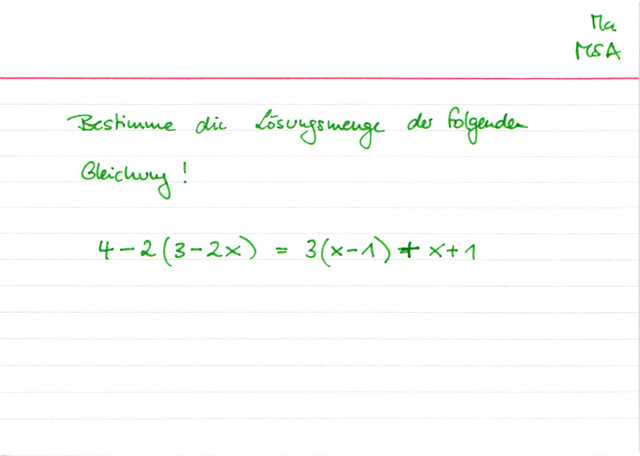 Ma
MSA
Bestimme die Lösungsmenge der folgenden
Gleichung!
4-2(3-2x) = 3(x-1) + x+1